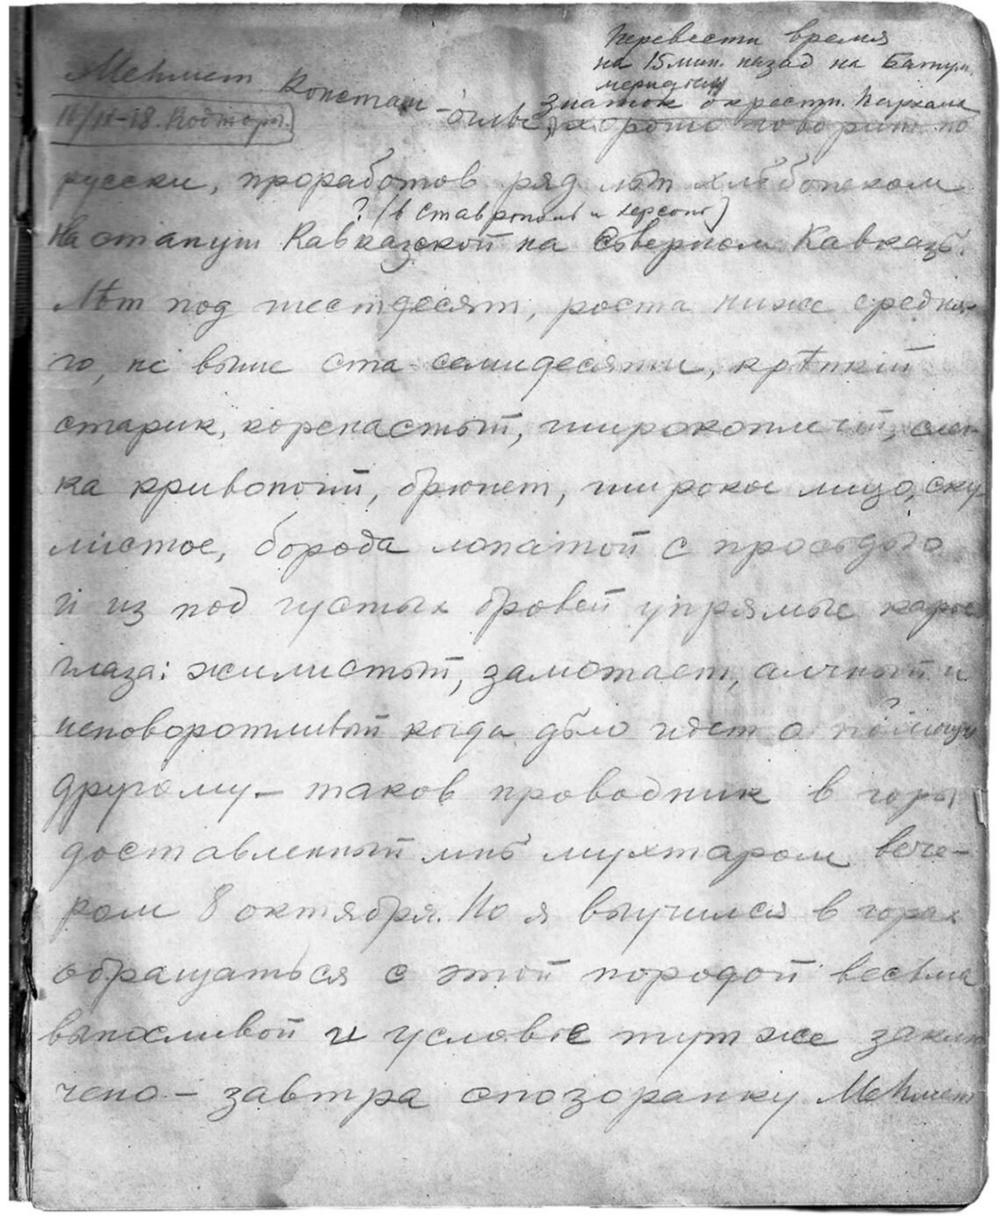 Перевести время
на 15 мин. назад на Батум.
меридиан
Меhмет Констан-
знаток окрестн. Пархала
10/IX-18.
-оглы, хорошо говорит по
русски, проработов ряд лѣт хлѣбопеком
? (в Ставрополѣ и Херсонѣ)
На станции Кавказской на Сѣверном Кавказѣ.
Лѣт под шестдесят, роста ниже средня-
го, не выше ста семидесяти, крѣпкий
старик, коренастый, широкоплечий, слег-
ка кривоногий, брюнет, широкое лицо, ску
листое, борода лопатой с просѣдью
и из под густых бровей упрямые карие
глаза: жилистый, замотает, алчный и
неповоротливый когда дѣло идет о помощи
другому – таков проводник в горы
доставленный мнѣ мухтаром вече-
ром 8 октября. Но я выучился в горах
обращаться с этой породой весьма
выносливой и условіе тут же заклю
чено – завтра спозоранку Меhмет